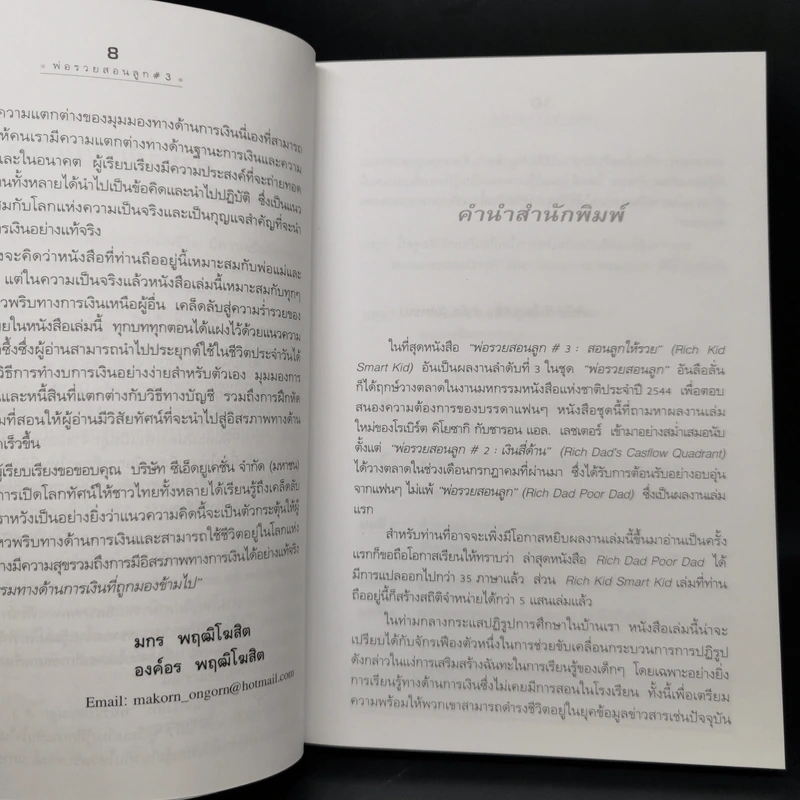 8
พ่อรวยสอนลูก # 3
ความแตกต่างของมุมมองทางด้านการเงินนี่เองที่สามารถ
ห้คนเรามีความแตกต่างทางด้านฐานะการเงินและความ
และในอนาคต ผู้เรียบเรียงมีความประสงค์ที่จะถ่ายทอด
นทั้งหลายได้นำไปเป็นข้อคิดและนำไปปฏิบัติ ซึ่งเป็นแนว
สมกับโลกแห่งความเป็นจริงและเป็นกุญแจสำคัญที่จะนำ
การเงินอย่างแท้จริง
งจะคิดว่าหนังสือที่ท่านถืออยู่นี้เหมาะสมกับพ่อแม่และ
แต่ในความเป็นจริงแล้วหนังสือเล่มนี้เหมาะสมกับทุกๆ
วพริบทางการเงินเหนือผู้อื่น เคล็ดลับสู่ความร่ำรวยของ
ยในหนังสือเล่มนี้ ทุกบททุกตอนได้แฝงไว้ด้วยแนวความ
กซึ้งซึ่งผู้อ่านสามารถนำไปประยุกต์ใช้ในชีวิตประจำวันได้
วิธีการทำงบการเงินอย่างง่ายสำหรับตัวเอง มุมมองการ
และหนี้สินที่แตกต่างกับวิธีทางบัญชี รวมถึงการฝึกหัด
มที่สอนให้ผู้อ่านมีวิสัยทัศน์ที่จะนำไปสู่อิสรภาพทางด้าน
เร็วขึ้น
ผู้เรียบเรียงขอขอบคุณ บริษัท ซีเอ็ดยูเคชั่น จำกัด (มหาชน)
การเปิดโลกทัศน์ให้ชาวไทยทั้งหลายได้เรียนรู้ถึงเคล็ดลับ
ราหวังเป็นอย่างยิ่งว่าแนวความคิดนี้จะเป็นตัวกระตุ้นให้ผู้
หวพริบทางด้านการเงินและสามารถใช้ชีวิตอยู่ในโลกแห่ง
างมีความสุขรวมถึงการมีอิสรภาพทางการเงินได้อย่างแท้จริง
รรมทางด้านการเงินที่ถูกมองข้ามไป"
มกร พฤฒิโฆสิต
องค์อร พฤฒิโฆสิต
Email: makorn_ongorn@hotmail.com
คำนำสำนักพิมพ์
ในที่สุดหนังสือ "พ่อรวยสอนลูก # 3 : สอนลูกให้รวย" (Rich Kid
Smart Kid) อันเป็นผลงานลำดับที่ 3 ในชุด "พ่อรวยสอนลูก" อันลือลั่น
ก็ได้ฤกษ์วางตลาดในงานมหกรรมหนังสือแห่งชาติประจำปี 2544 เพื่อตอบ
สนองความต้องการของบรรดาแฟนๆ หนังสือชุดนี้ที่ถามหาผลงานเล่ม
ใหม่ของโรเบิร์ต คิโยซากิ กับชารอน แอล. เลชเตอร์ เข้ามาอย่างสม่ำเสมอนับ
ตั้งแต่ "พ่อรวยสอนลูก # 2 : เงินสี่ด้าน" (Rich Dad's Casflow Quadrant)
ได้วางตลาดในช่วงเดือนกรกฎาคมที่ผ่านมา ซึ่งได้รับการต้อนรับอย่างอบอุ่น
จากแฟนๆ ไม่แพ้ "พ่อรวยสอนลูก" (Rich Dad Poor Dad) ซึ่งเป็นผลงานเล่ม
แรก
สำหรับท่านที่อาจจะเพิ่งมีโอกาสหยิบผลงานเล่มนี้ขึ้นมาอ่านเป็นครั้ง
แรกก็ขอถือโอกาสเรียนให้ทราบว่า ล่าสุดหนังสือ Rich Dad Poor Dad ได้
มีการแปลออกไปกว่า 35 ภาษาแล้ว ส่วน Rich Kid Smart Kid เล่มที่ท่าน
ถืออยู่นี้ก็สร้างสถิติจำหน่ายได้กว่า 5 แสนเล่มแล้ว
ในท่ามกลางกระแสปฏิรูปการศึกษาในบ้านเรา หนังสือเล่มนี้น่าจะ
เปรียบได้กับจักรเฟืองตัวหนึ่งในการช่วยขับเคลื่อนกระบวนการการปฏิรูป
ดังกล่าวในแง่การเสริมสร้างฉันทะในการเรียนรู้ของเด็กๆ โดยเฉพาะอย่างยิ่ง
การเรียนรู้ทางด้านการเงินซึ่งไม่เคยมีการสอนในโรงเรียน ทั้งนี้เพื่อเตรียม
ความพร้อมให้พวกเขาสามารถดำรงชีวิตอยู่ในยุคข้อมูลข่าวสารเช่นปัจจุบัน